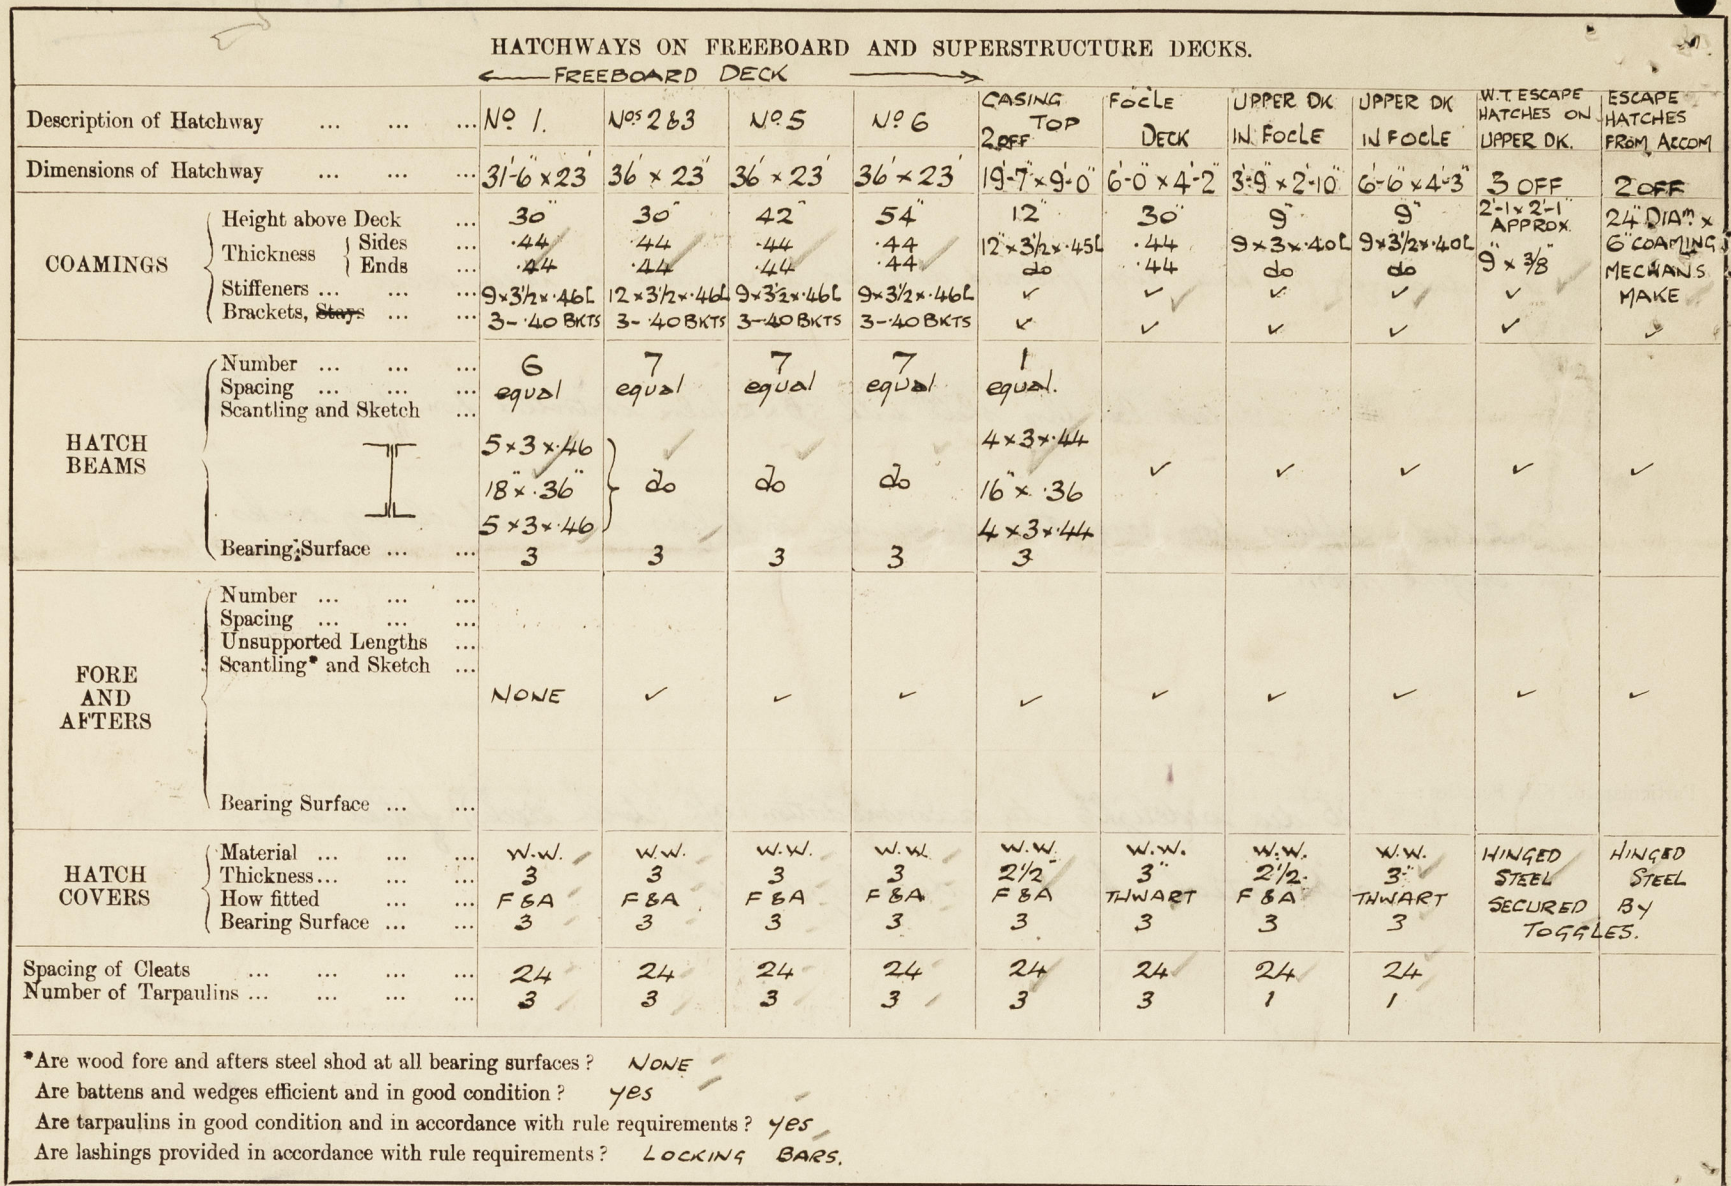 HATCHWAYS ON FREEBOARD AND SUPERSTRUCTURE DECKS.
FREEBOARD DECK
Description of Hatchway ... ... ... No 1. Nos 2&3 No 5 No 6 CASING TOP 2 OFF FOCLE DECK UPPER DK IN FOCLE UPPER DK IN FOCLE W.T. ESCAPE HATCHES ON UPPER DK. ESCAPE HATCHES FROM ACCOM
Dimensions of Hatchway ... ... ... 31'-6" × 23' 36' × 23' 36' × 23' 36' × 23' 19'-7" × 9'-0" 6'-0" × 4'-2" 3'-9" × 2'-10" 6'-6" × 4'-3" 3 OFF 2 OFF
COAMINGS
Height above Deck ... 30" 30" 42" 54" 12" 30" 9" 9" 2'-1 × 2'-1" APPROX. 24" DIAM ×
Thickness { Sides ... .44 .44 .44 .44 12" × 3½ × .45L .44 9 × 3 × .40L 9 × 3½ × .40L 9" × 3/8" 6" COAMING
Ends ... .44 .44 .44 .44 do .44 do do MECHANS
Stiffeners ... ... ... 9 × 3½ × .46L 12 × 3½ × .46L 9 × 3½ × .46L 9 × 3½ × .46L ✓ ✓ ✓ ✓ ✓ MAKE
Brackets, Stays ... ... 3 - .40 BKTS 3 - .40 BKTS 3 - .40 BKTS 3 - .40 BKTS ✓ ✓ ✓ ✓ ✓ ✓
HATCH BEAMS
Number ... ... ... 6 7 7 7 1
Spacing ... ... ... equal equal equal equal equal.
Scantling and Sketch ...
5 × 3 × .46 4 × 3 × .44
18" × .36" do do do 16" × .36 ✓ ✓ ✓ ✓ ✓
5 × 3 × .46 4 × 3 × .44
Bearing Surface ... ... 3 3 3 3 3
FORE AND AFTERS
Number ... ... ...
Spacing ... ... ...
Unsupported Lengths ...
Scantling* and Sketch ...
NONE ✓ ✓ ✓ ✓ ✓ ✓ ✓ ✓ ✓
Bearing Surface ... ...
HATCH COVERS
Material ... ... ... W.W. W.W. W.W. W.W. W.W. W.W. W.W. W.W. HINGED HINGED
Thickness ... ... ... 3 3 3 3 2½" 3" 2½. 3" STEEL STEEL
How fitted ... ... F & A F & A F & A F & A F & A THWART F & A THWART SECURED BY
Bearing Surface ... ... 3 3 3 3 3 3 3 3 TOGGLES.
Spacing of Cleats ... ... ... ... 24 24 24 24 24 24 24 24
Number of Tarpaulins ... ... ... ... 3 3 3 3 3 3 1 1
*Are wood fore and afters steel shod at all bearing surfaces? NONE
Are battens and wedges efficient and in good condition? yes
Are tarpaulins in good condition and in accordance with rule requirements? yes
Are lashings provided in accordance with rule requirements? LOCKING BARS.